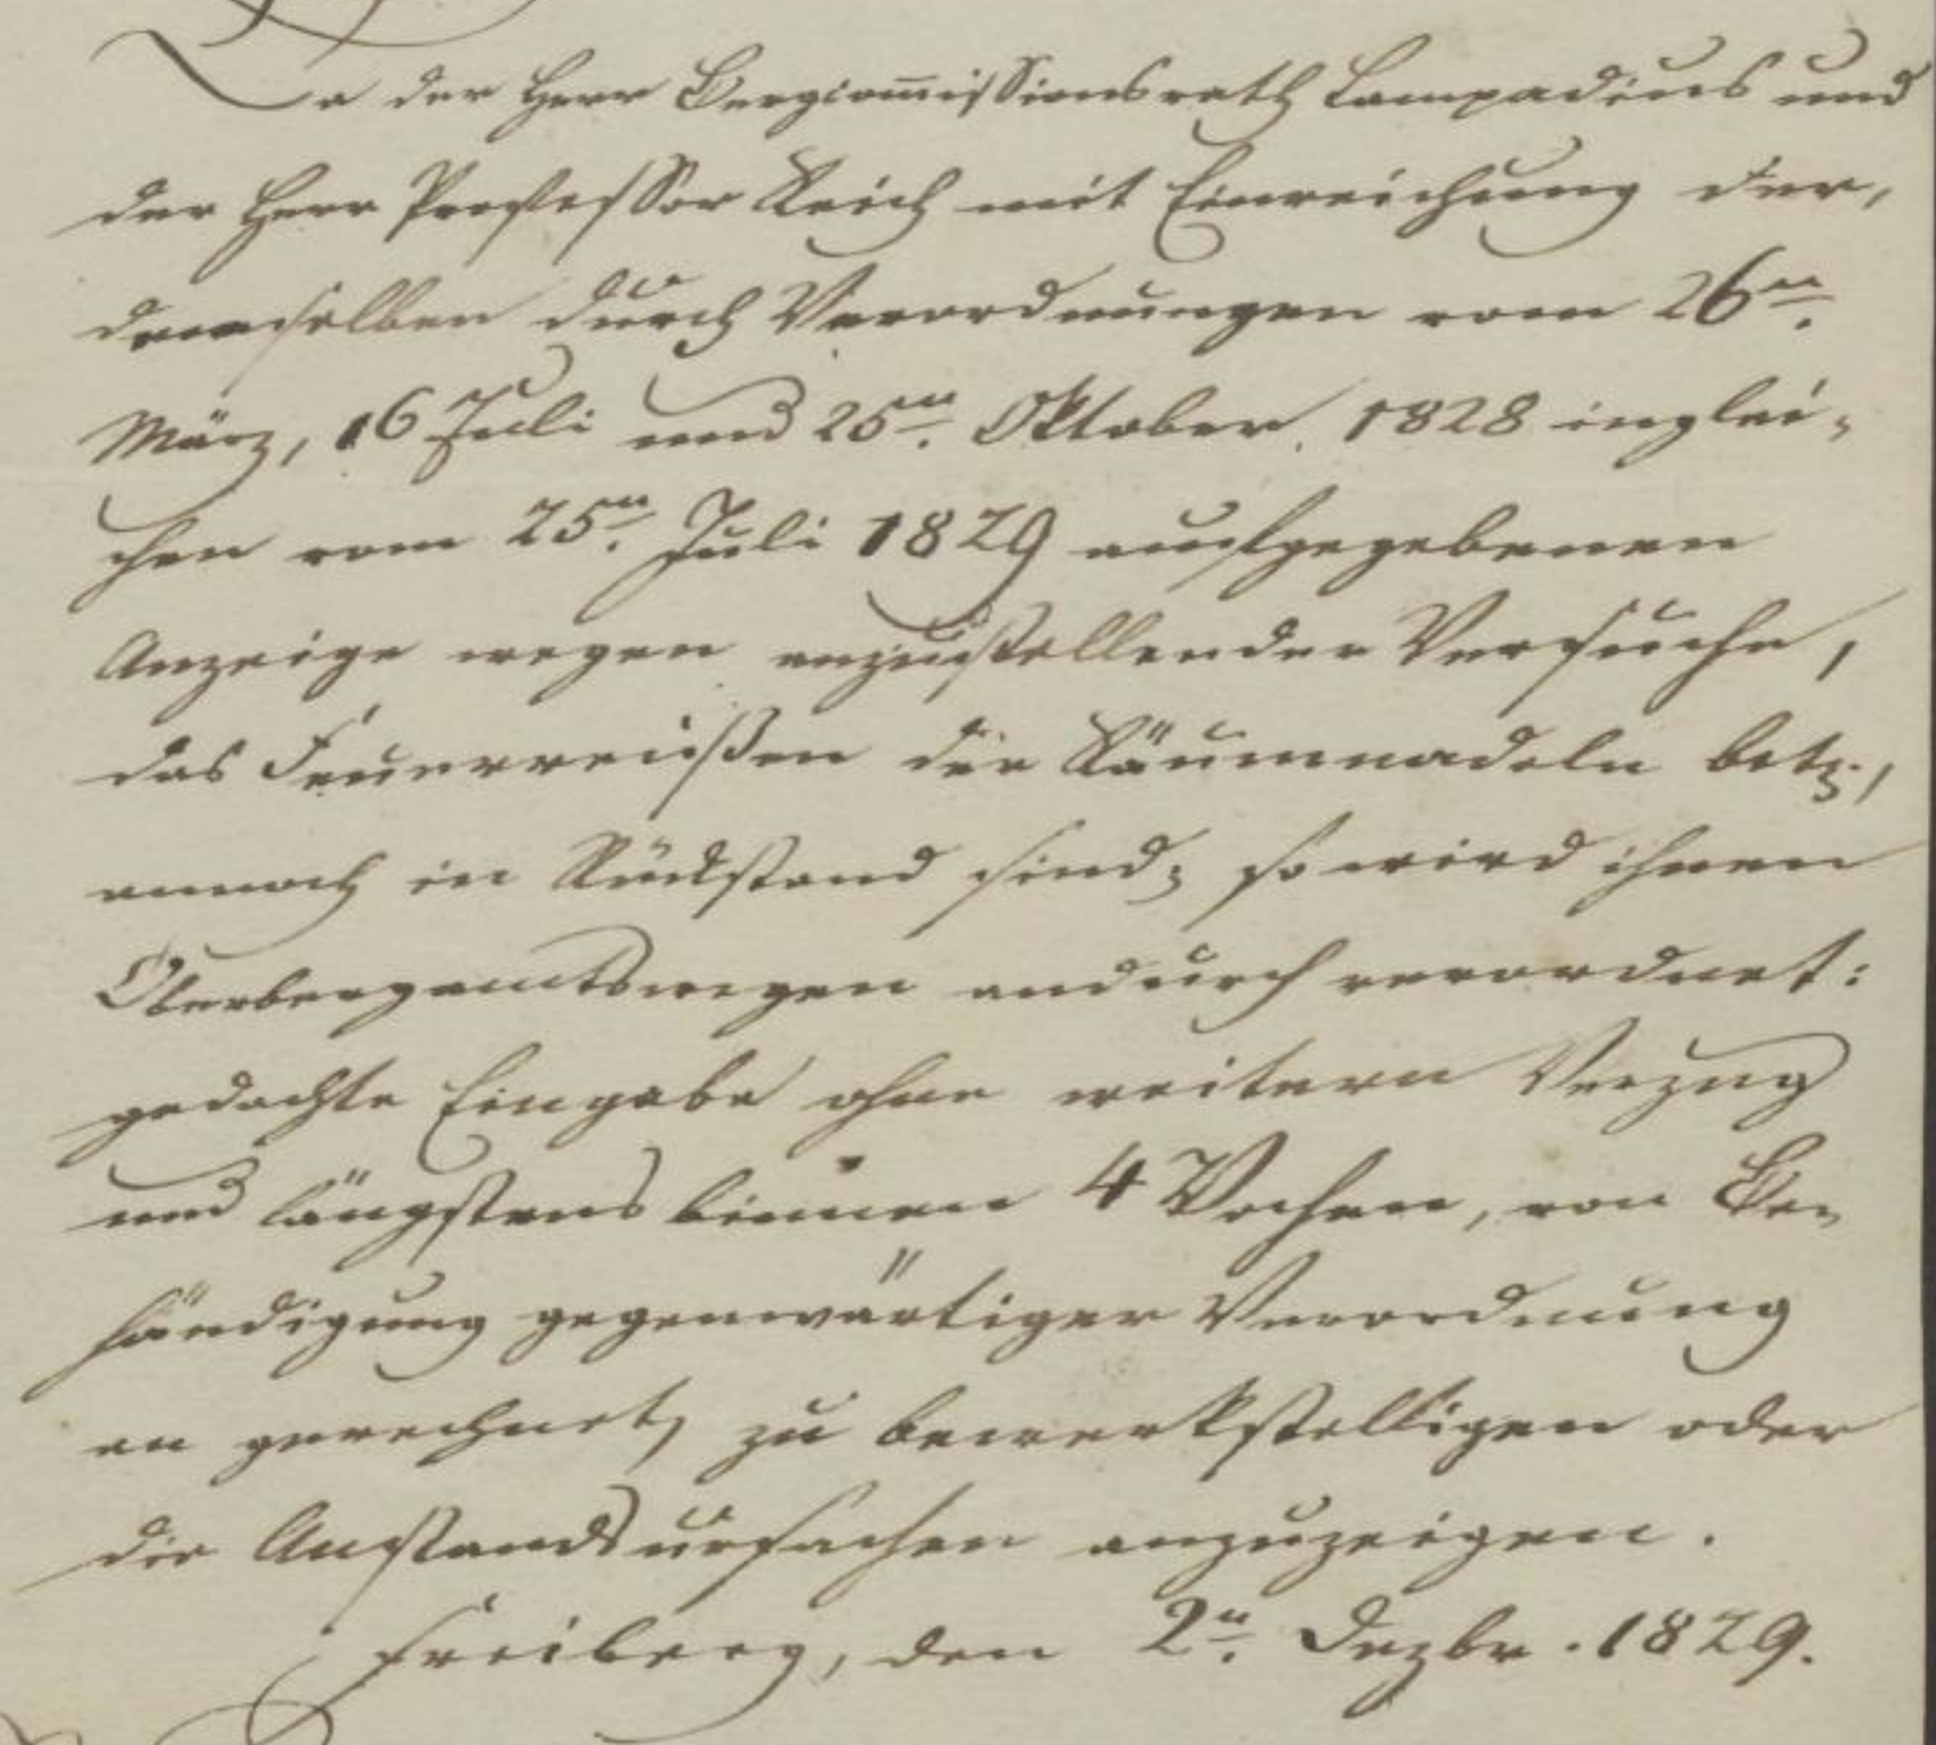 Da der Herr Bergcommissionsrath Lampadius und
der Herr Professor Reich mit Einreichung der,
denenselben durch Verordnungen vom 26n.
März, 16 Juli und 25n. Oktober 1828 inglei-
chen vom 25n. Juli 1829 aufgegebenen
Anzeige wegen anzustellender Versuche,
das Feuerreißen der Räumnadeln betr.,
annoch in Rückstand sind; so wird ihnen
Oberbergamtswegen andurch verordnet:
gedachte Eingabe ohne weitern Verzug
und längstens binnen 4 Wochen, von Be-
händigung gegenwärtiger Verordnung
an gerechnet, zu bewerkstelligen oder
die Anstandsursachen anzuzeigen.
Freiberg, den 2n. Dezbr. 1829.